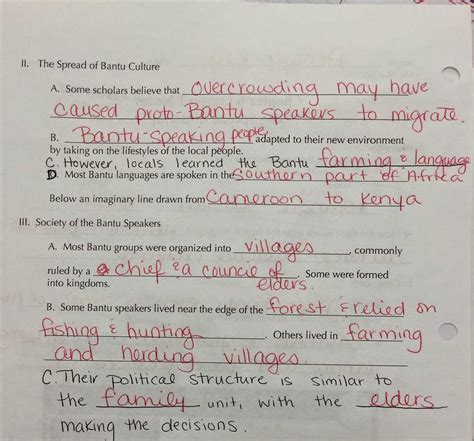 II. The Spread of Bantu Culture
A. Some scholars believe that overcrowding may have
caused proto-Bantu speakers to migrate.
B. Bantu-speaking people, adapted to their new environment
by taking on the lifestyles of the local people.
C. However, locals learned the Bantu farming & language
D. Most Bantu languages are spoken in the Southern part of Africa
Below an imaginary line drawn from Cameroon to Kenya
III. Society of the Bantu Speakers
A. Most Bantu groups were organized into villages, commonly
ruled by a chief & a councie of elders. Some were formed
into kingdoms.
B. Some Bantu speakers lived near the edge of the forest & relied on
fishing & hunting. Others lived in farming
and herding villages.
C. Their political structure is similar to
the family unit, with the elders
making the decisions.